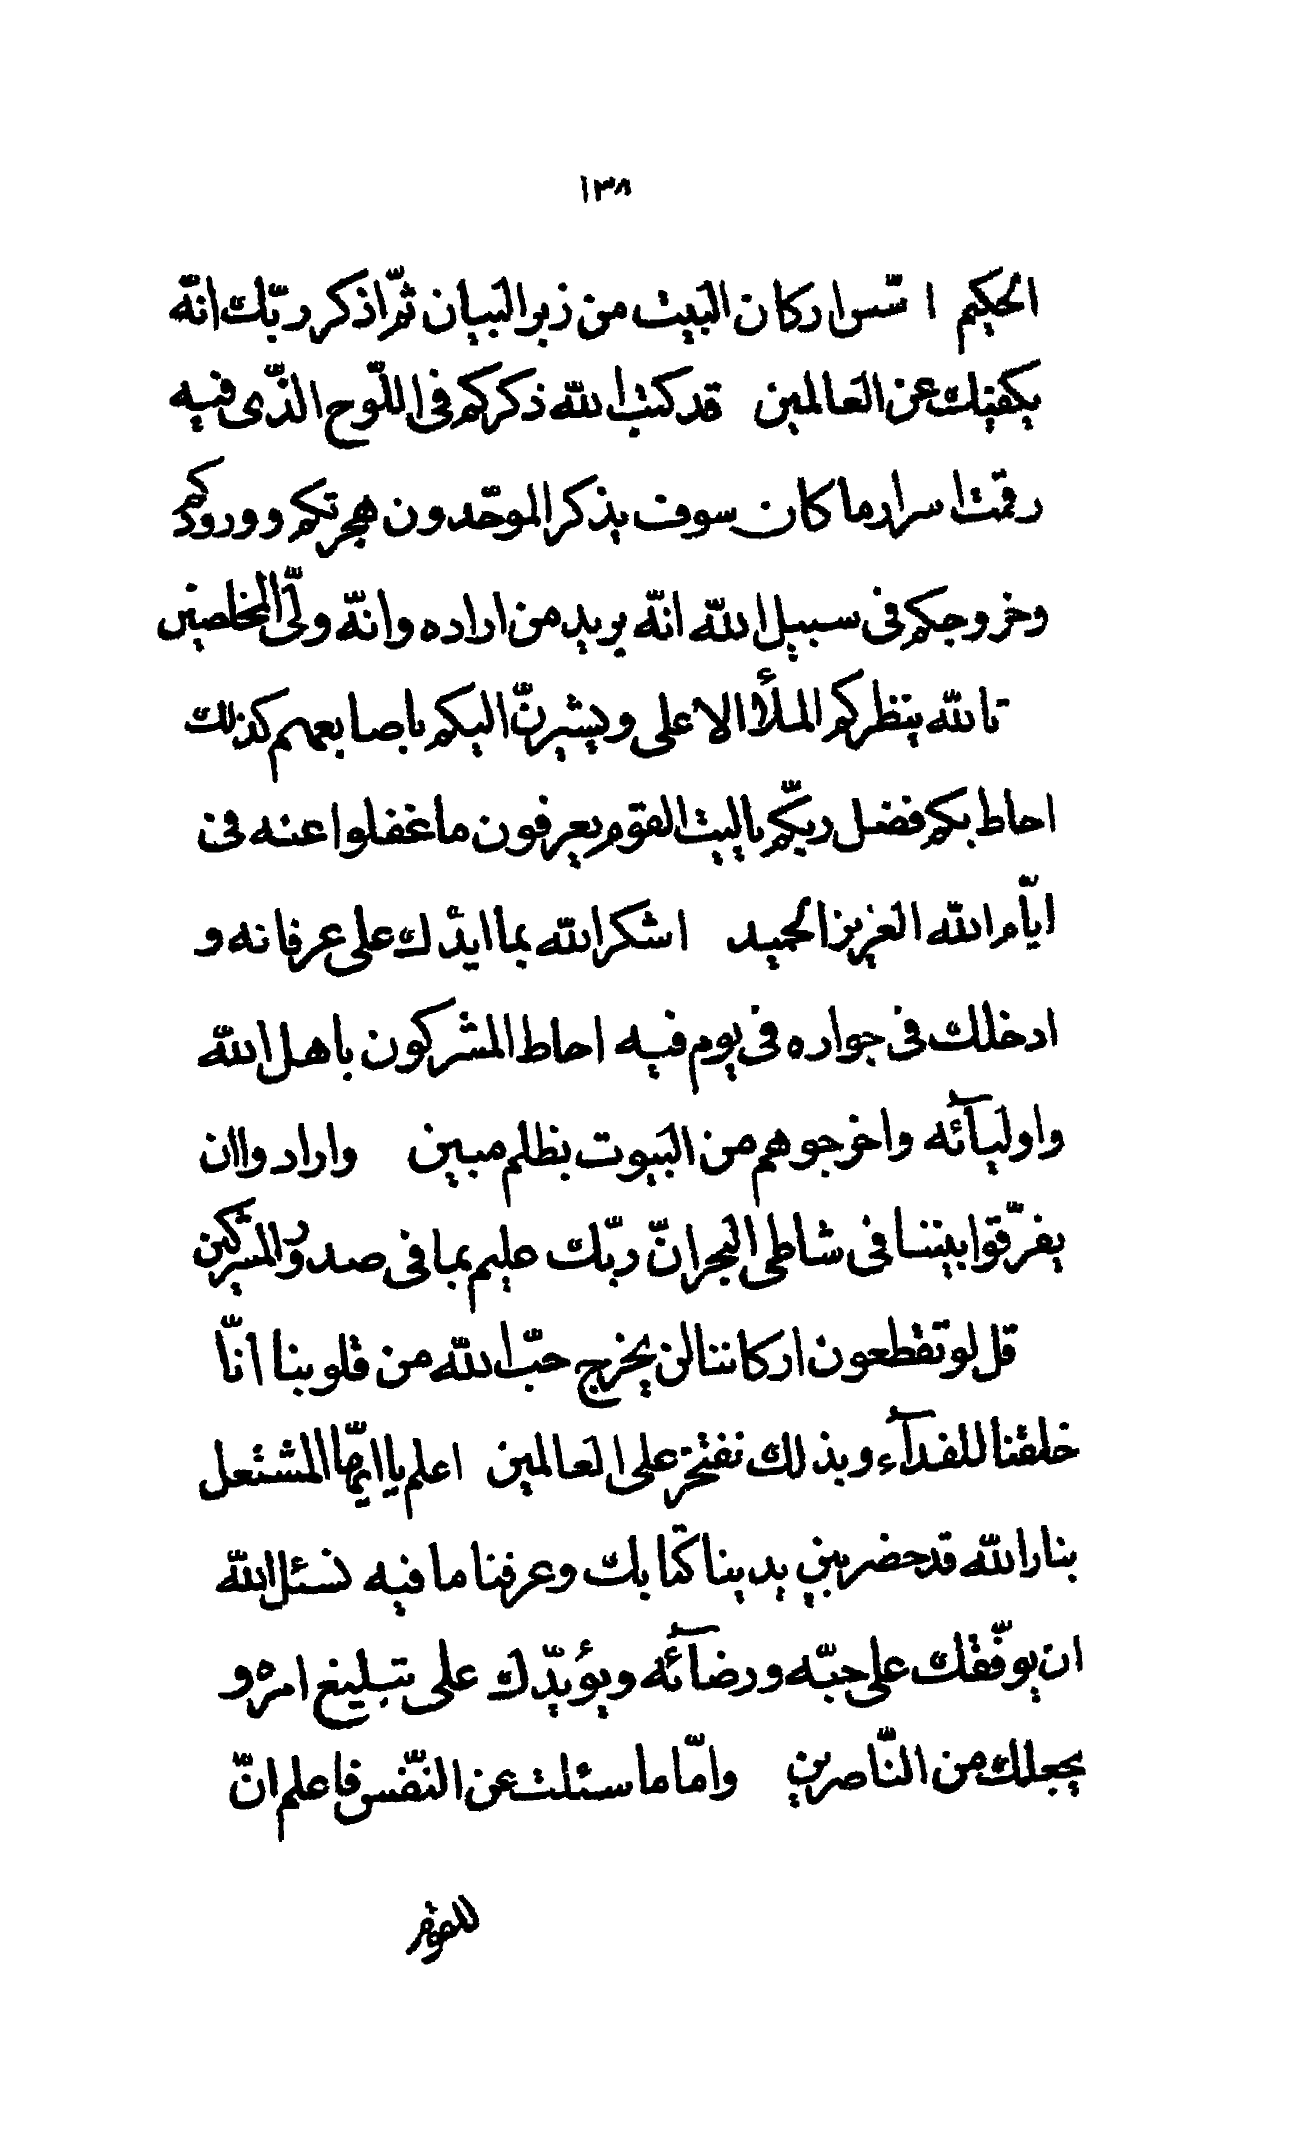 ١٣٨
الحكيم اسّس اركان البيت من زبر البيان ثمّ اذكر ربّك انّه
يكفيك عن العالمين قد كتب الله ذكركم فى اللّوح الّذى فيه
رقمت اسرار ما كان سوف يذكر الموحّدون هجرتكم و ورودكم
وخروجكم فى سبيل الله انّه يريد من اراده وانّه ولىّ المخلصين
تالله ينظركم الملأ الاعلى ويشيرنّ اليكم باصابعهم كذلك
احاط بكم فضل ربّكم ياليت القوم يعرفون ما غفلوا عنه فى
ايّام الله العزيز الحميد اشكر الله بما ايّدك على عرفانه و
ادخلك فى جواره فى يوم فيه احاط المشركون باهل الله
واوليآئه واخرجوهم من البيوت بظلم مبين وارادوا ان
يفرّقوا بيننا فى شاطى البحر انّ ربّك عليم بما فى صدور المشركين
قل لو تقطعون اركاننا لن يخرج حبّ الله من قلوبنا انّا
خلقنا للفدآء وبذلك نفتخر على العالمين اعلم يا ايّها المشتعل
بنار الله قد حضر بين يدينا كتابك وعرفنا ما فيه نسئل الله
ان يوفّقك على حبّه ورضآئه ويؤيّدك على تبليغ امره و
يجعلك من النّاصرين وامّا ما سئلت عن النّفس فاعلم انّ
للقوم